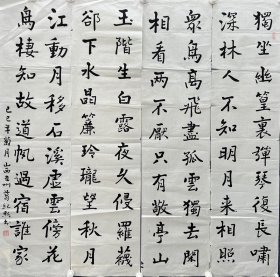 獨坐幽篁裏彈琴復長嘯
深林人不知明月來相照
衆鳥高飛盡孤雲獨去閑
相看兩不厭只有敬亭山
玉階生白露夜久侵羅襪
卻下水晶簾玲瓏望秋月
江動月移石溪虛雲傍花
鳥棲知故道帆過宿誰家